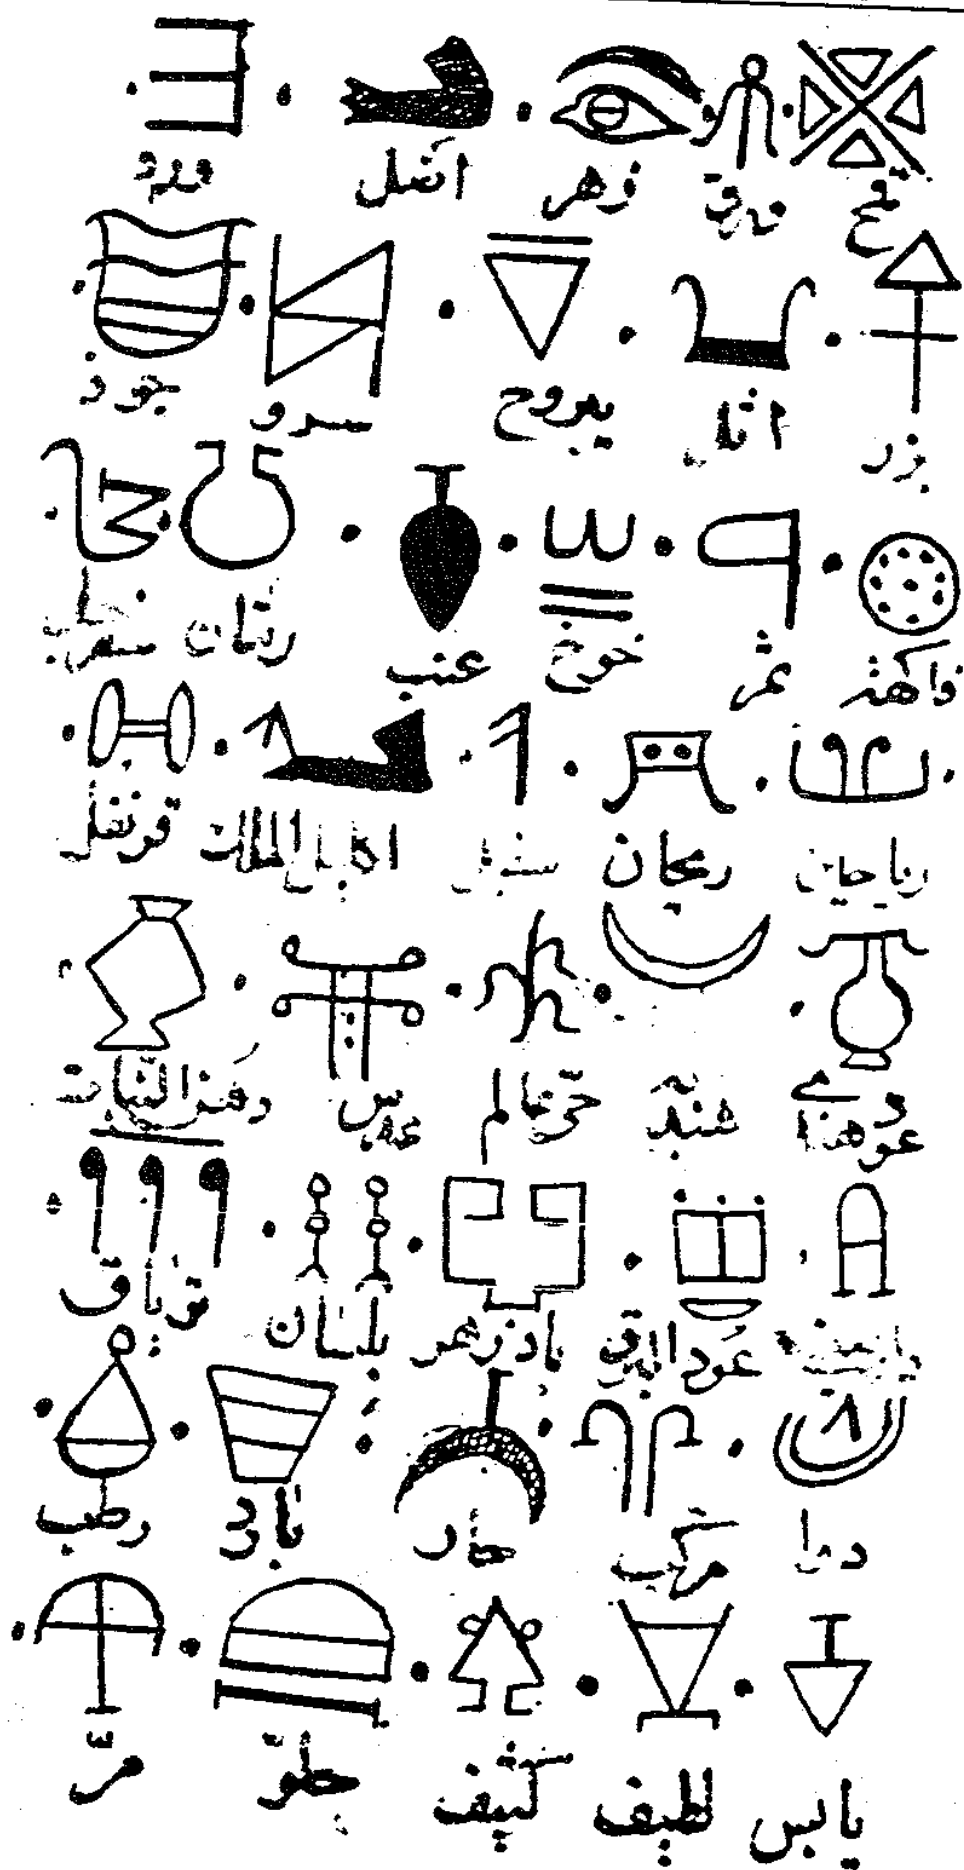 قمح ورق زهر اثل ورد
بزر اثل يبروح سرو جود
فاكهة تمر خوخ عنب رمان
رياحين ريحان سنبل اكليل الملك قرنفل
عود هندي حي عالم عدس دهن
عود البرق بادزهر بلسان ترياق
دوا مركب حار بارد رطب
يابس لطيف كثيف حلو مر